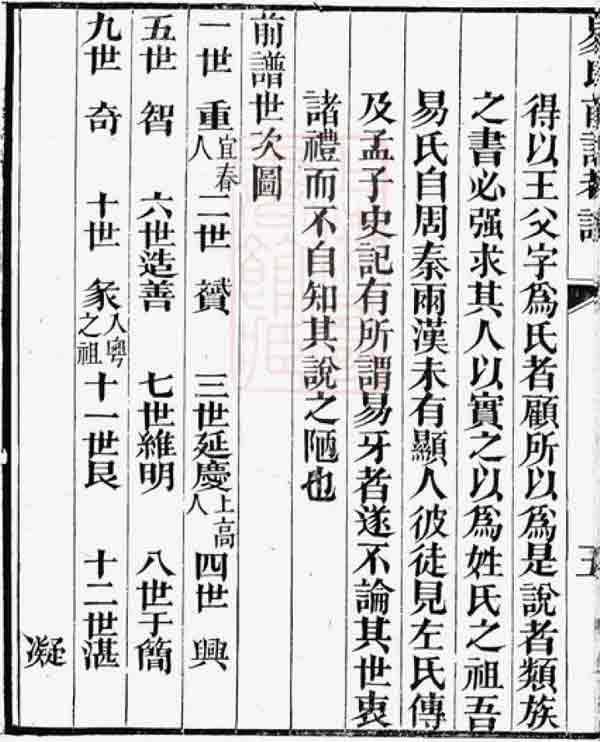 易氏前譜考證
得以王父字爲氏者顧所以爲是說者類族
之書必强求其人以實之以爲姓氏之祖吾
易氏自周秦兩漢未有顯人彼徒見左氏傳
及孟子史記有所謂易牙者遂不論其世衷
諸禮而不自知其說之陋也
前譜世次圖
一世 重宜春人 二世 贇 三世延慶上高人 四世 興
五世 智 六世造善 七世維明 八世于簡
九世 奇 十世 彖入粵之祖 十一世艮 十二世湛
凝